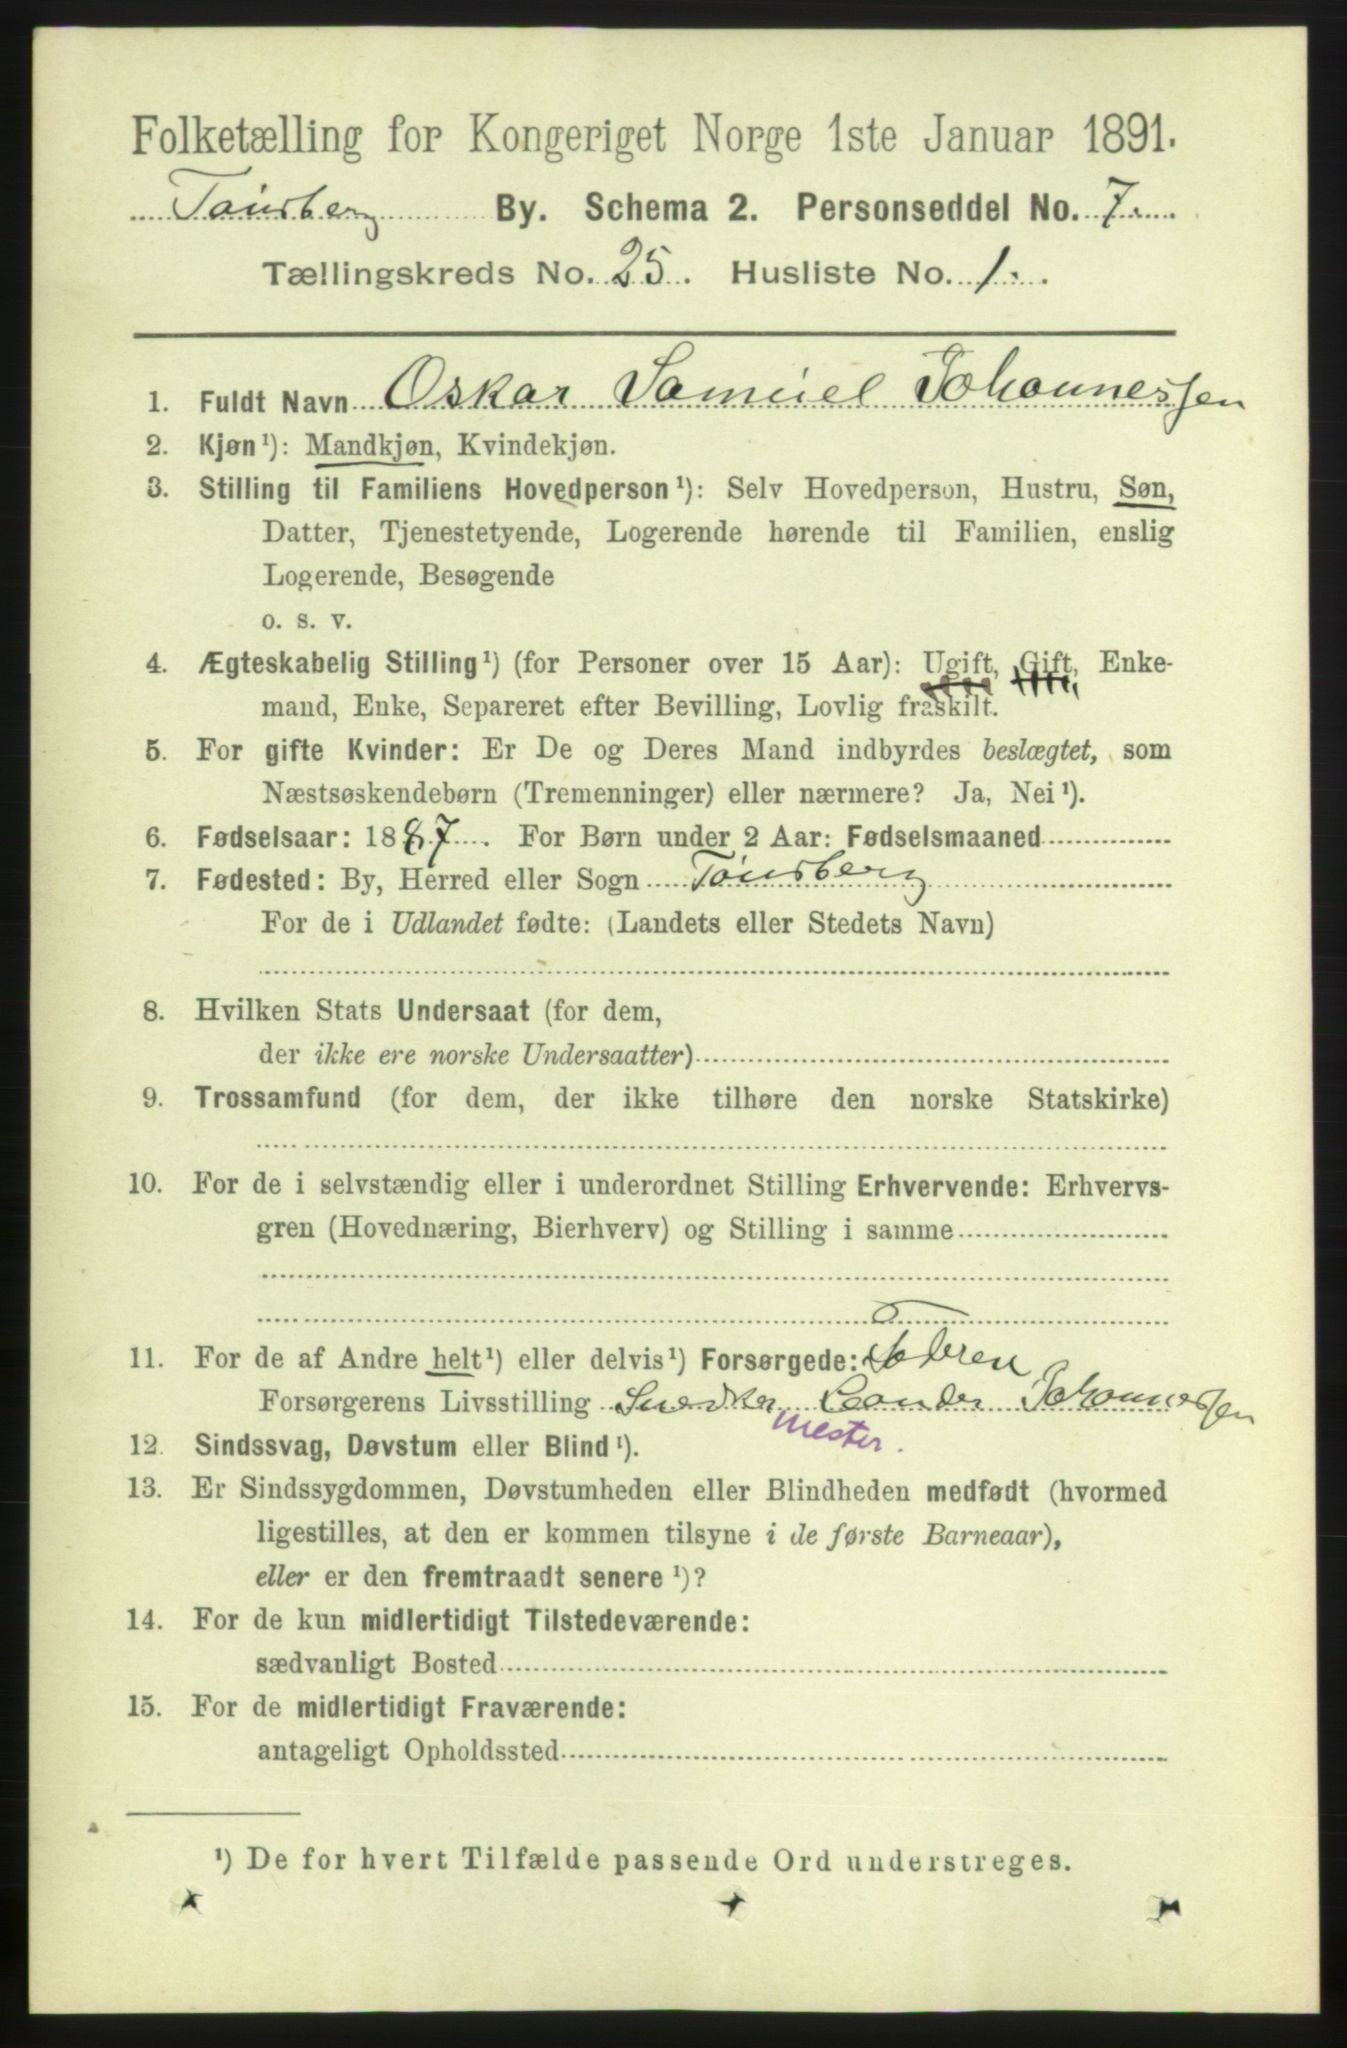 Folketælling for Kongeriget Norge 1ste Januar 1891.
Tönsberg By. Schema 2. Personseddel No. 7.
Tællingskreds No. 25. Husliste No. 1.
1. Fuldt Navn Oskar Samuel Johannessen
2. Kjøn¹): Mandkjøn, Kvindekjøn.
3. Stilling til Familiens Hovedperson¹): Selv Hovedperson, Hustru, Søn,
Datter, Tjenestetyende, Logerende hørende til Familien, enslig
Logerende, Besøgende
o. s. v.
4. Ægteskabelig Stilling¹) (for Personer over 15 Aar): Ugift, Gift, Enke-
mand, Enke, Separeret efter Bevilling, Lovlig fraskilt.
5. For gifte Kvinder: Er De og Deres Mand indbyrdes beslægtet, som
Næstsøskendebørn (Tremenninger) eller nærmere? Ja, Nei¹).
6. Fødselsaar: 1887. For Børn under 2 Aar: Fødselsmaaned
7. Fødested: By, Herred eller Sogn Tönsberg
For de i Udlandet fødte: (Landets eller Stedets Navn)
8. Hvilken Stats Undersaat (for dem,
der ikke ere norske Undersaatter)
9. Trossamfund (for dem, der ikke tilhøre den norske Statskirke)
10. For de i selvstændig eller i underordnet Stilling Erhvervende: Erhvervs-
gren (Hovednæring, Bierhverv) og Stilling i samme
11. For de af Andre helt¹) eller delvis¹) Forsørgede: Faderen
Forsørgerens Livsstilling Snedker Leander Johannessen
mester.
12. Sindssvag, Døvstum eller Blind¹).
13. Er Sindssygdommen, Døvstumheden eller Blindheden medfødt (hvormed
ligestilles, at den er kommen tilsyne i de første Barneaar),
eller er den fremtraadt senere¹)?
14. For de kun midlertidigt Tilstedeværende:
sædvanligt Bosted
15. For de midlertidigt Fraværende:
antageligt Opholdssted
¹) De for hvert Tilfælde passende Ord understreges.